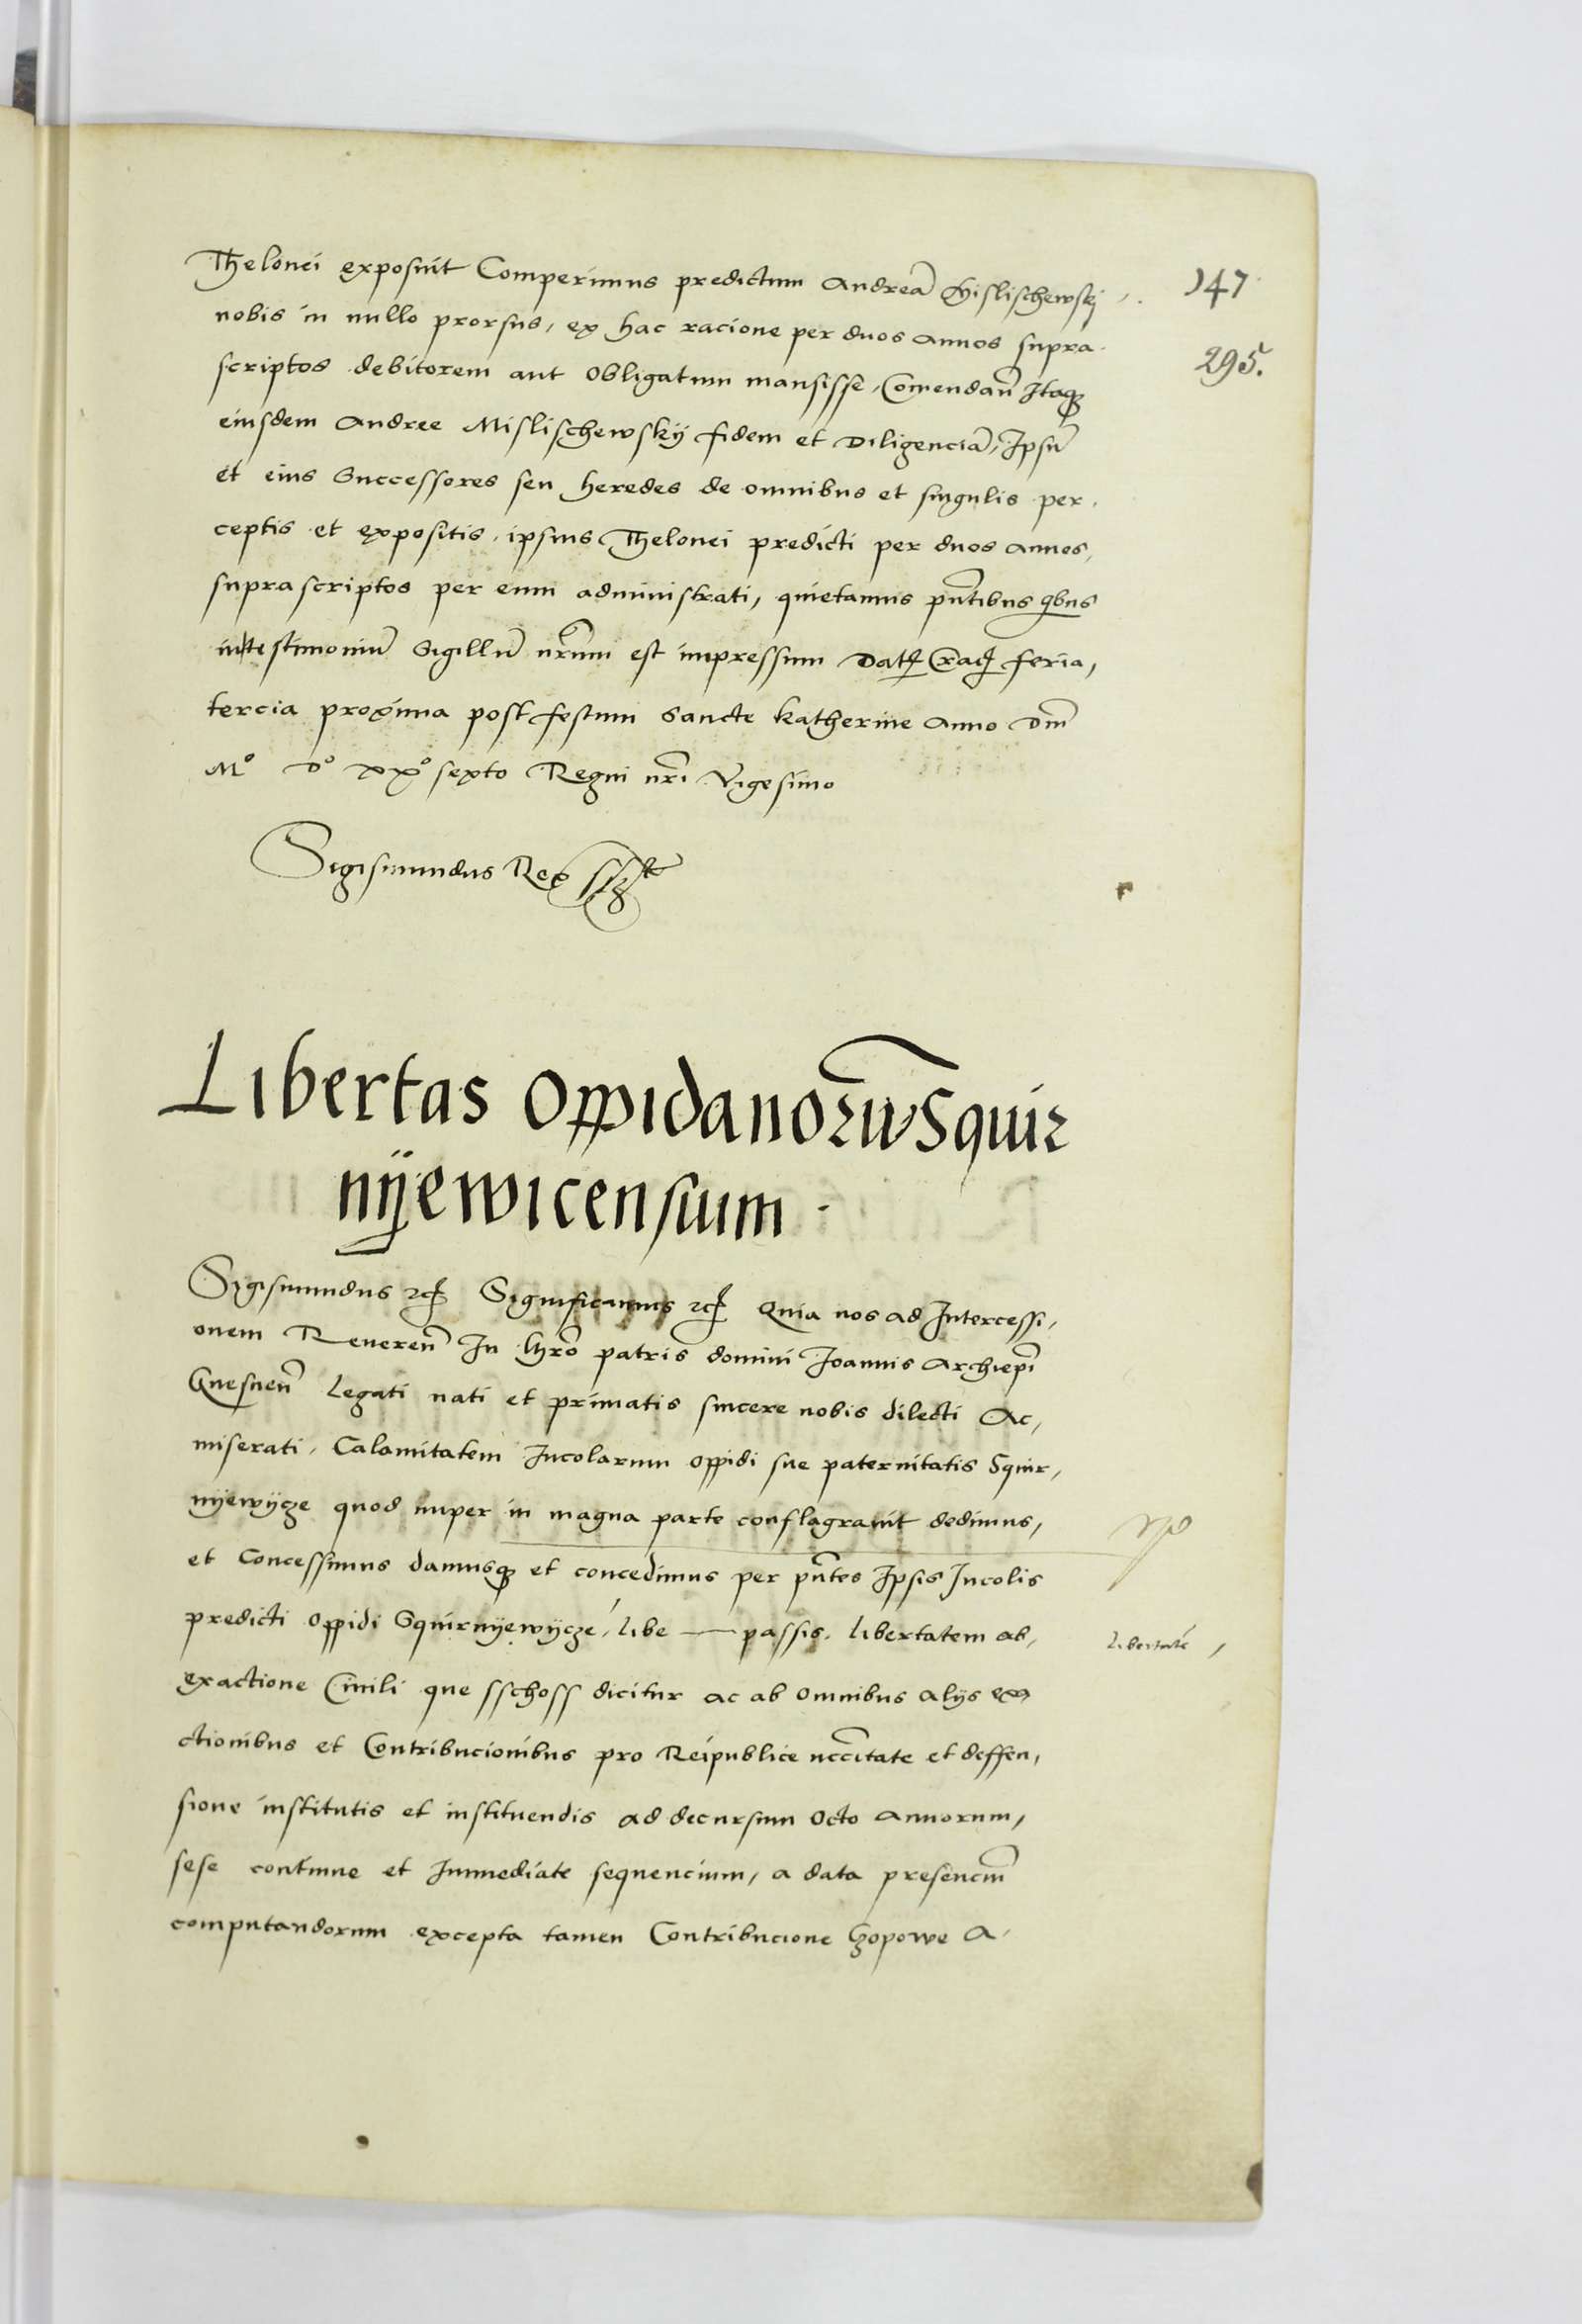 147
295.
Thelonei exposuit Comperimus predictum Andreã Mislischewskj
nobis in nullo prorsus, ex hac racione per duos Annos supra
scriptos debitorem aut obligatum mansisse, Comendañ Itaqꝫ
eiusdem Andree Mislischewskÿ fidem et Diligenciã, Ipsũ
et eius Successores seu heredes de omnibus et singulis per,
ceptis et expositis, ipsius Thelonei predicti per duos annos,
suprascriptos per eum administrati, quietamus pñtibus qbus
in testimoniũ Sigillũ nr̃um est impressum Datꝭ Cracꝭ feria,
tercia proxima post festum Sancte Katherine Anno Dñi
Mº Dº xxº sexto Regni nr̃i Vigesimo
Sigismundus Rex sszt
Libertas Oppidanorũ Squir
nÿewicensium.
Sigismundus ꝛcꝭ Significamus ꝛcꝭ Quia nos ad Intercessi,
onem Revereñ In Chrõ patris domini Joannis Archiepĩ
Gnesneñ Legati nati et primatis sincere nobis dilecti Ac,
miserati, Calamitatem Incolarum oppidi sue paternitatis Squir,
nÿewÿcze quod nuper in magna parte conflagravit dedimus,
et Concessimus damusqꝫ et concedimus per pñtes Ipsis Incolis
predicti oppidi Squirnÿewÿcze, libe — passis, libertatem ab,
libertatẽ,
exactione Civili que sschoss dicitur ac ab omnibus alÿs exa
ctionibus et Contribucionibus pro Reipublice nccĩtate et deffen,
sione institutis et instituendis ad decursum Octo Annorum,
sese continue et Immediate sequencium, a data presenciũ
computandorum excepta tamen Contribucione Czopowe A,